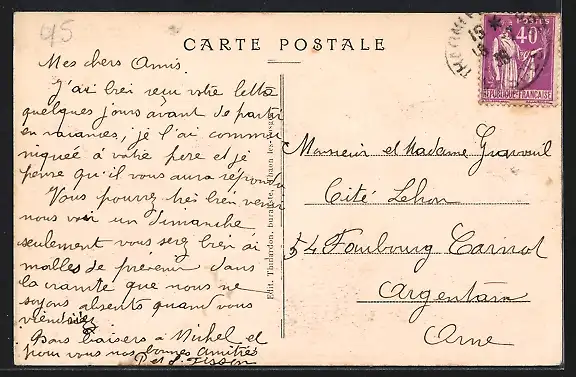 45
CARTE POSTALE
POSTES
40
RÉPUBLIQUE FRANÇAISE
Mes chers Amis
J'ai bien reçu votre lettre
quelques jours avant de partir
en vacances, je l'ai commu
niquée à votre père et je
pense qu'il vous aura répondu
Vous pourrez très bien venir
nous voir un dimanche
seulement vous serez bien ai
malles de prévenir dans
la crainte que nous ne
soyons absents quand vous
viendriez
Bons baisers à Michel et
pour vous nos bonnes amitiés
P et S. Tisson
Edit. Thaon-les-Vosges
Monsieur et Madame
Cité Lehon
54 Faubourg Carnot
Argentan
Orne